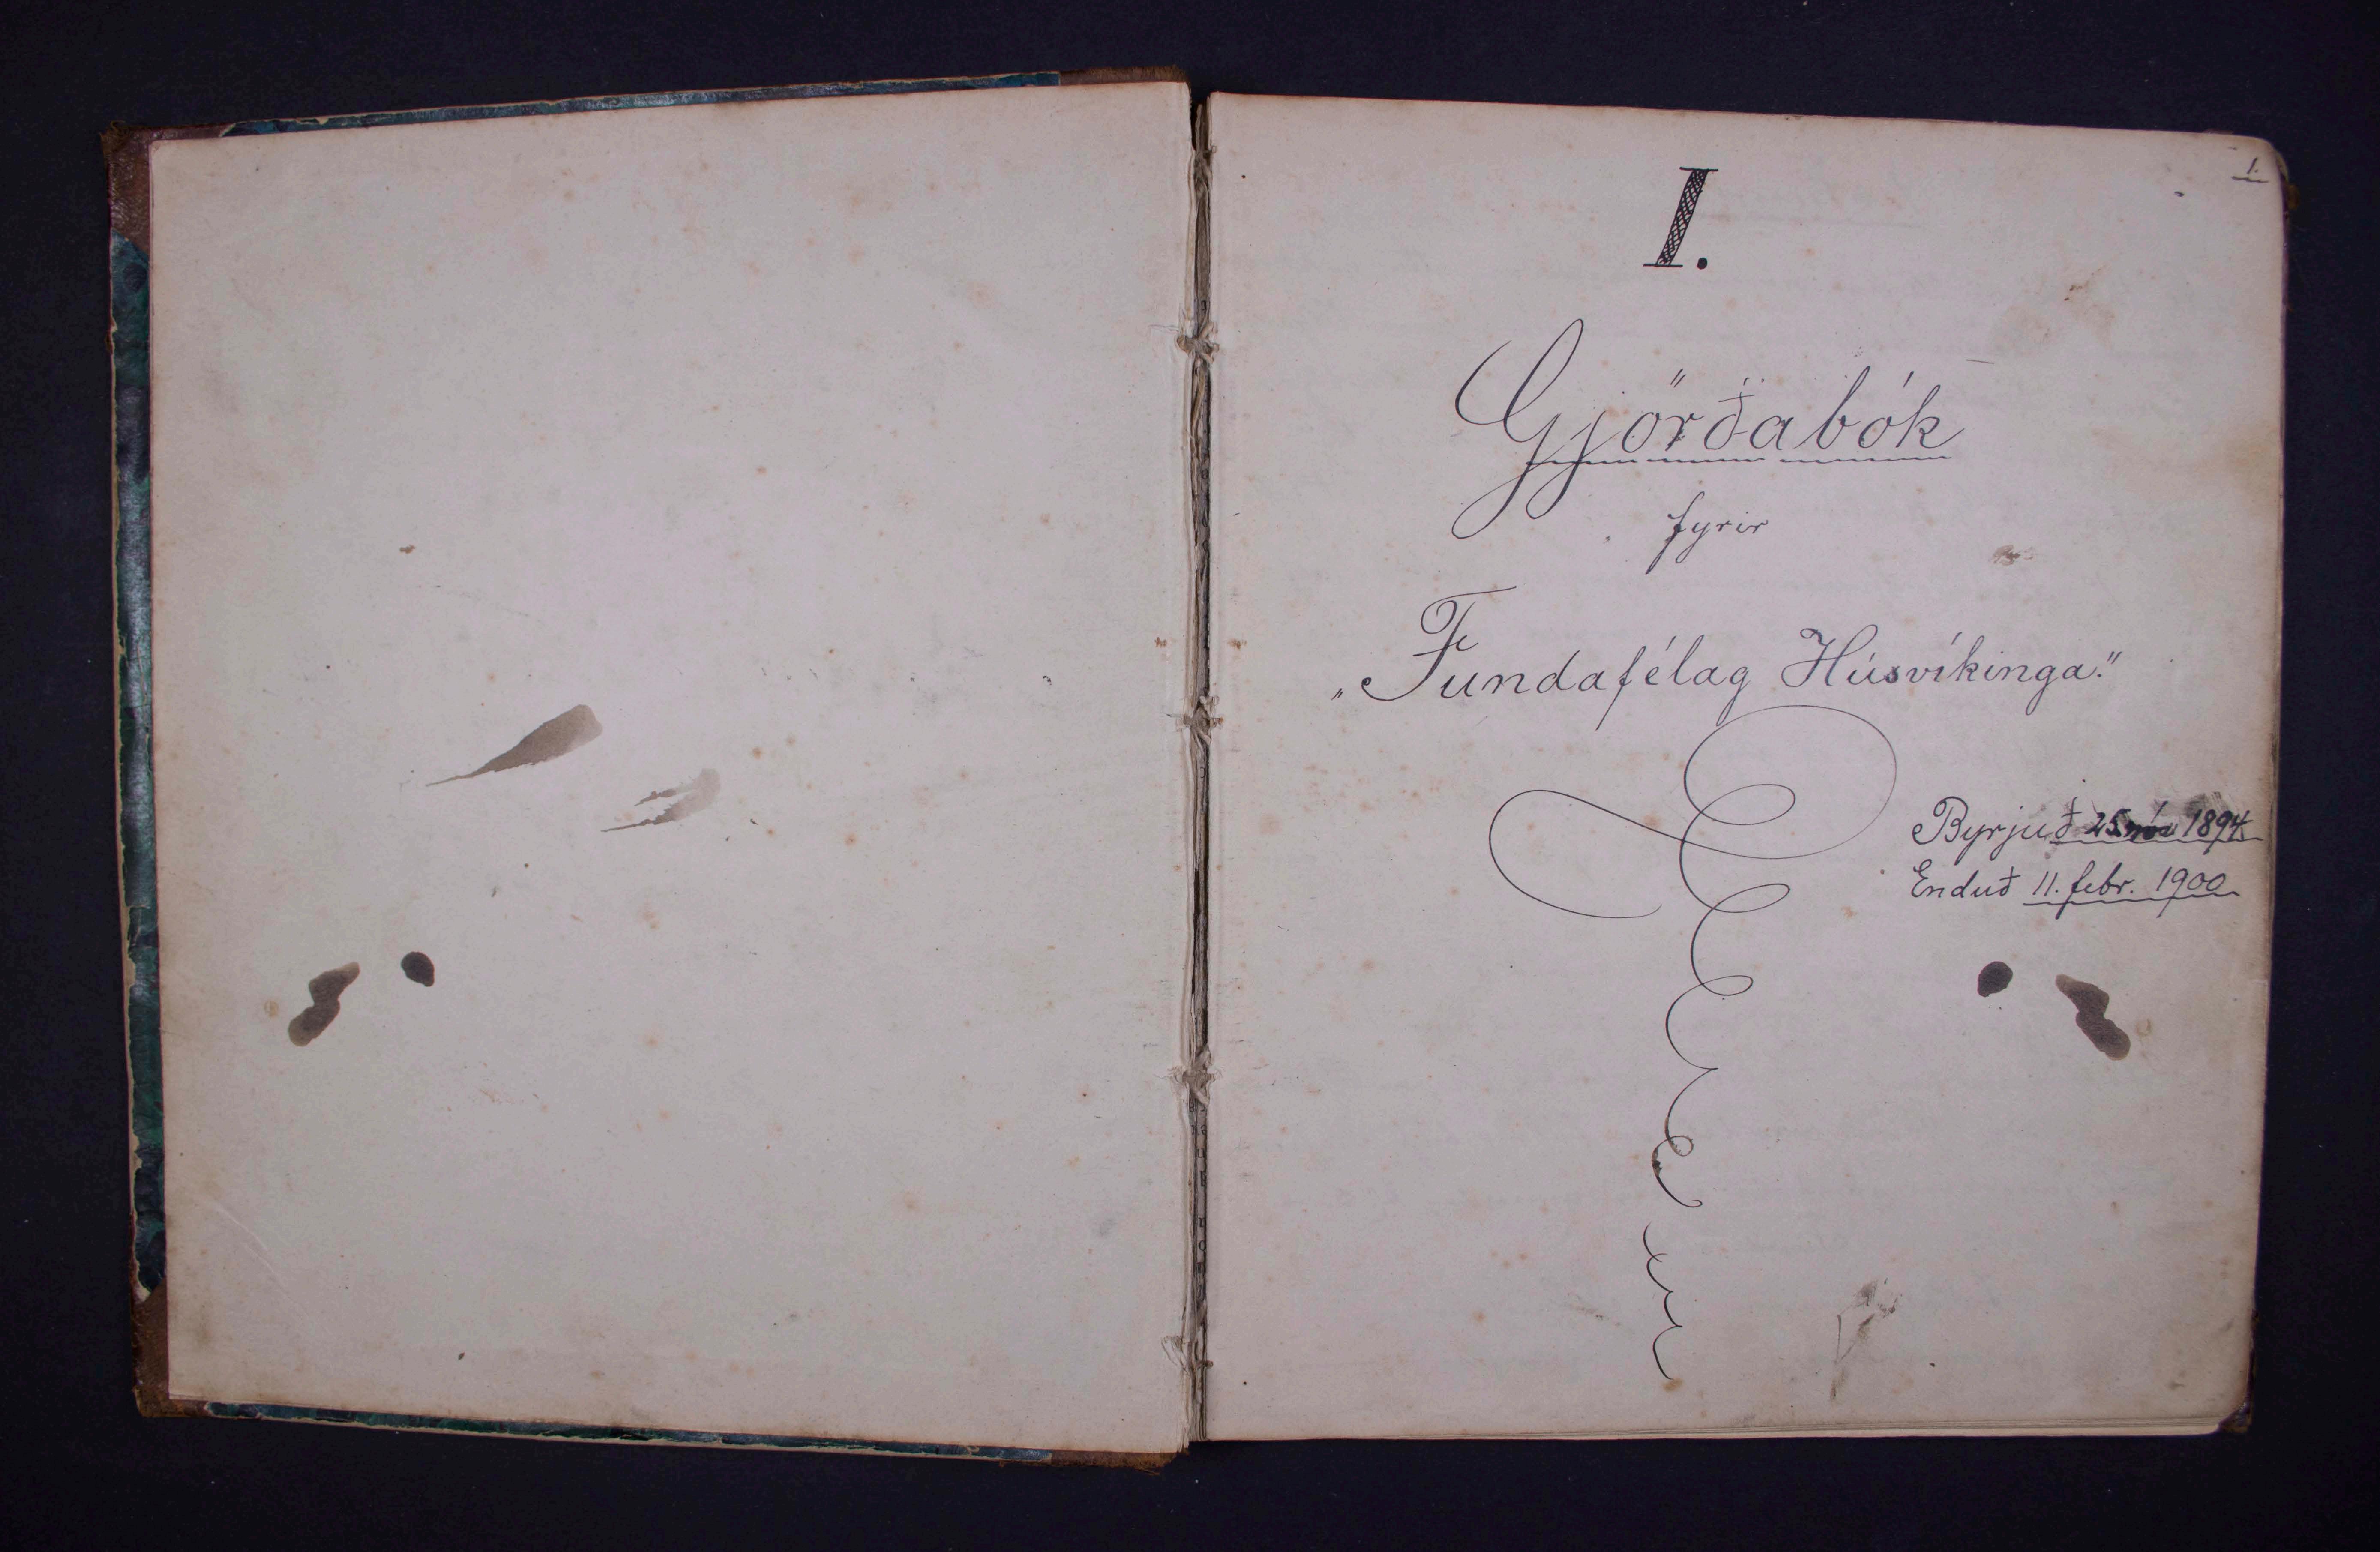 1.
I.
Gjörðabók
fyrir
„Fundafélag Húsvíkinga."
Byrjuð 25. nóv 1894
Enduð 11. febr. 1900